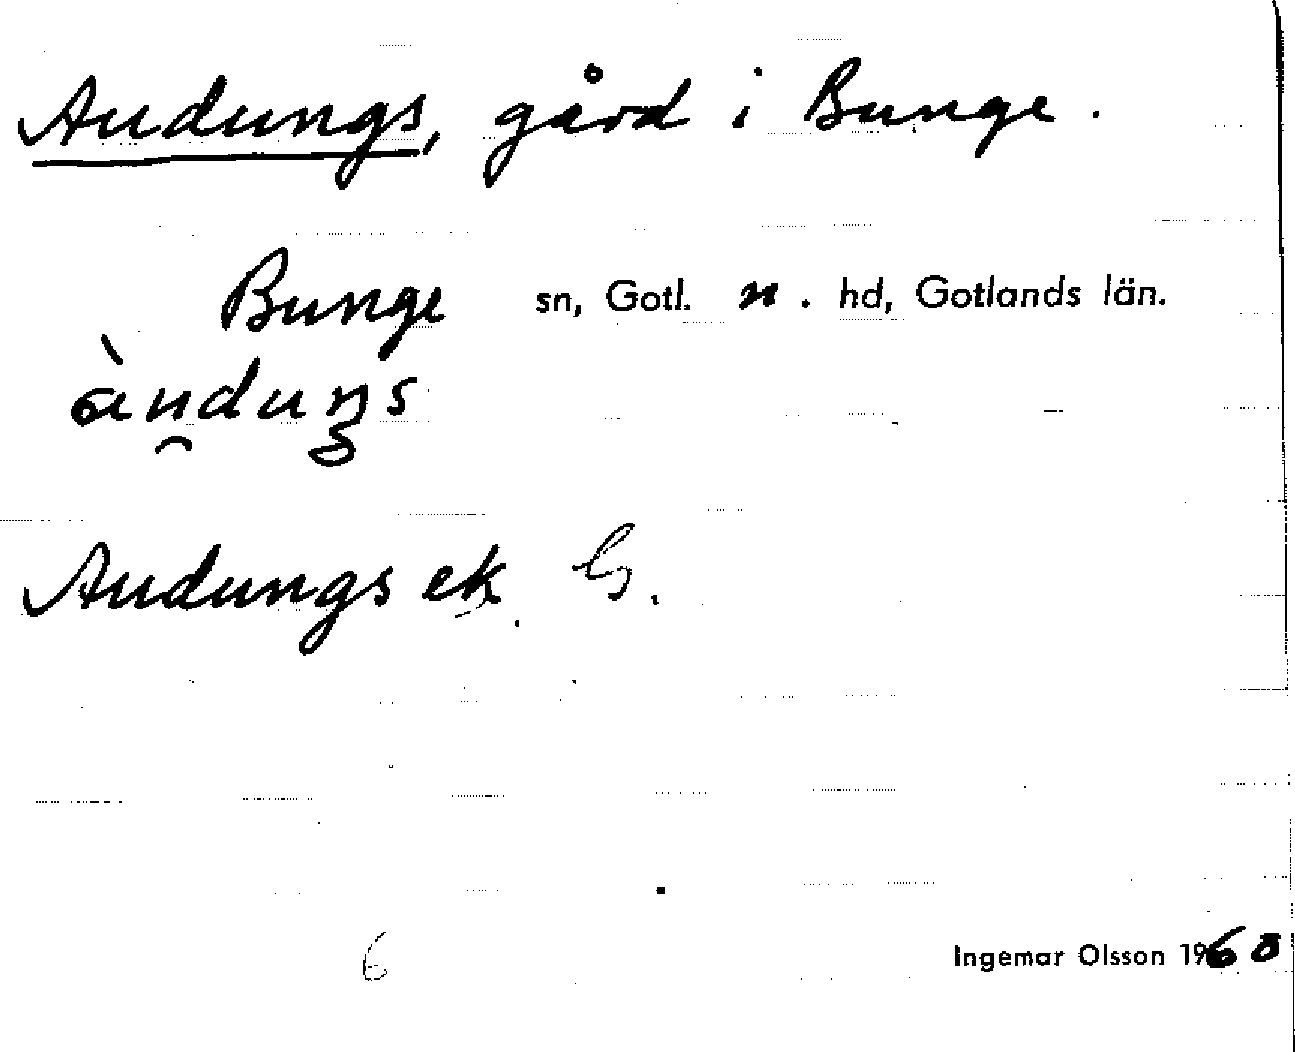 Audungs, gård i Bunge.
Bunge sn, Gotl. n. hd, Gotlands län.
Audungs ek. G.
6
Ingemar Olsson 1960